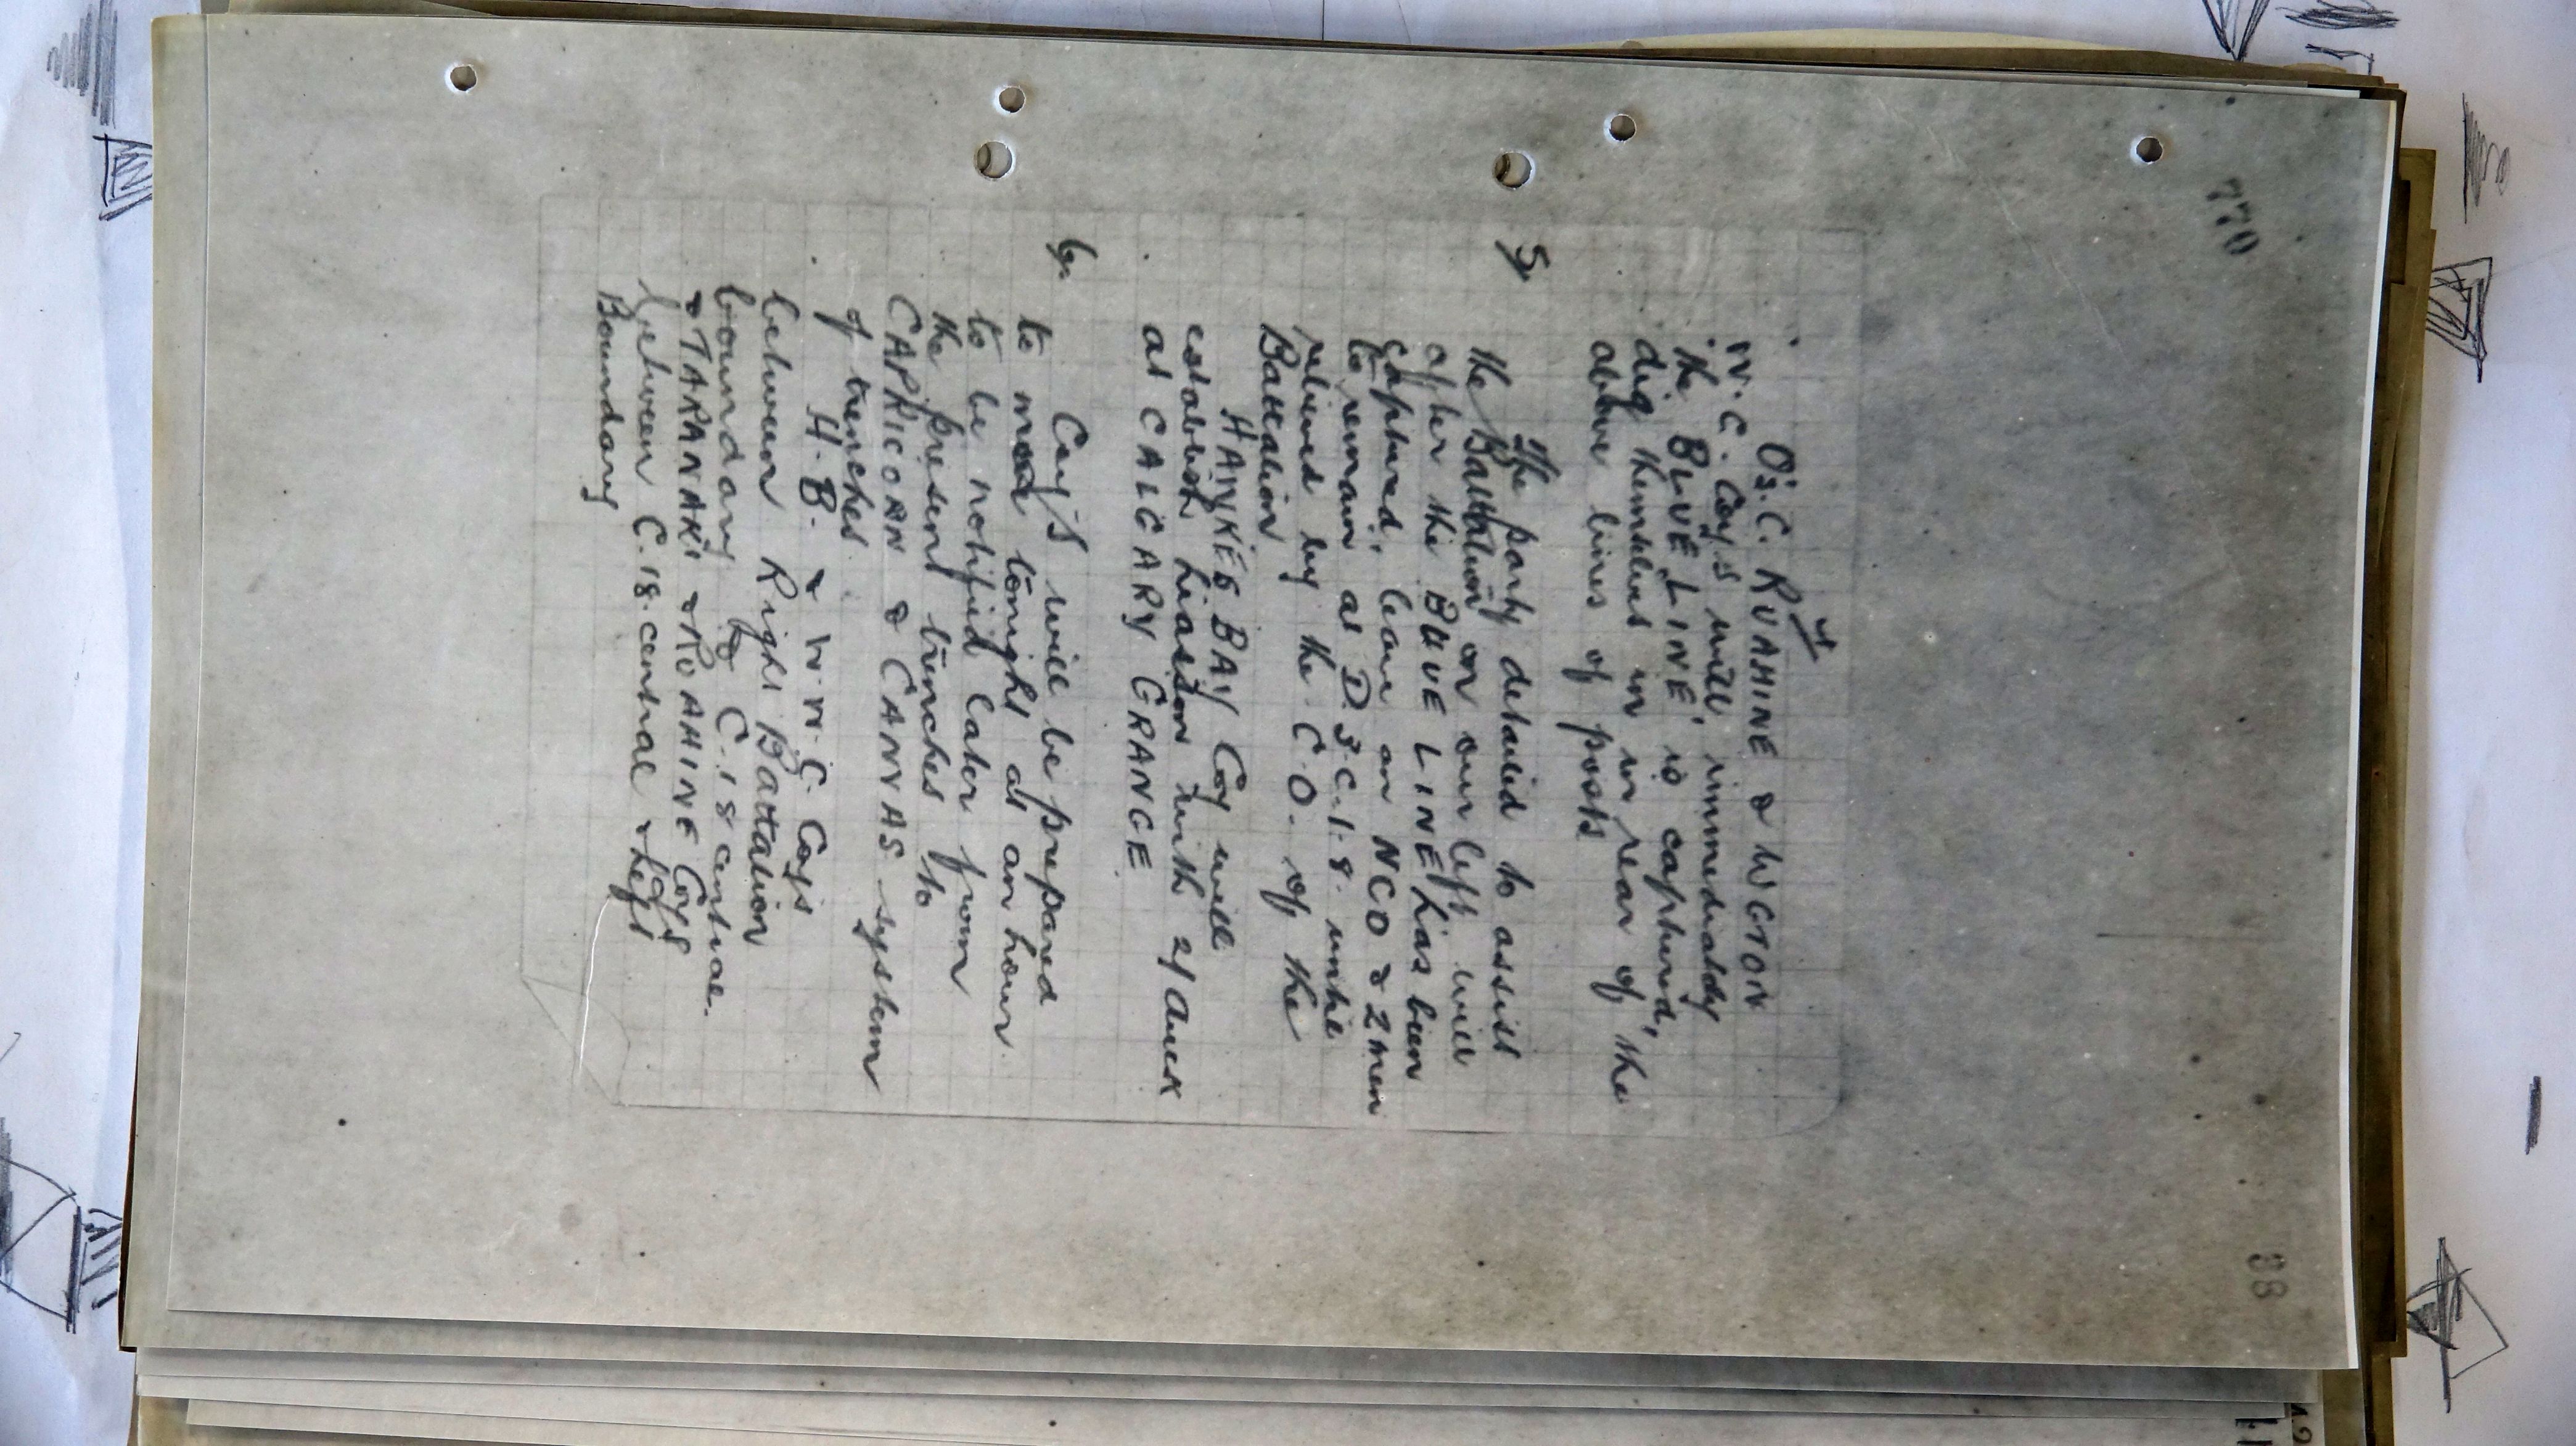 770
4
O's.C. RUAHINE & WGTON
W.C. Coy's will, immediately
the 'BLUE LINE' is captured,
dig themselves in in rear of the
above lines of posts
5/ The party detailed to assist
the Battalion on our left will
after the BLUE LINE has been
captured, leave an NCO & 2 men
to remain at D.3.c.1.8. until
relieved by the C.O. of the
Battalion
HAWKES BAY Coy will
establish liasson with 2/ Auck
at CALGARY GRANGE.
6. Coy's will be prepared
to move tonight at an hour
to be notified later from
the present trenches to
CAPRICORN & CANVAS system
of trenches.
H.B. & W.W.C. Coys
between Right Battalion
boundary to C.18 central.
& TARANAKI & RUAHINE Coys
between C.18.central & Left
Boundary
38